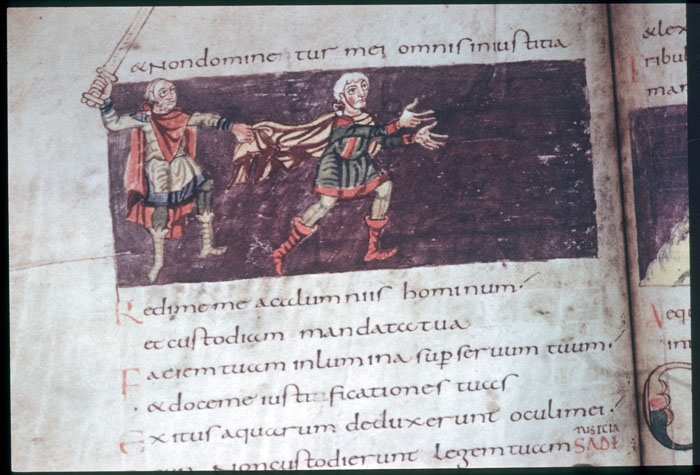 &Nondominetur mei omnisiniustitia
Redimeme acalumniis hominum·
etcustodiam mandatatua
Faciemtuam inlumina sup seruum tuum·
·&doceme iustificationes tuas
Exitusaquarum deduxerunt oculimei·
Noncustodierunt legemtuam
SADE
&lex
ribul
mar
Aequ
int